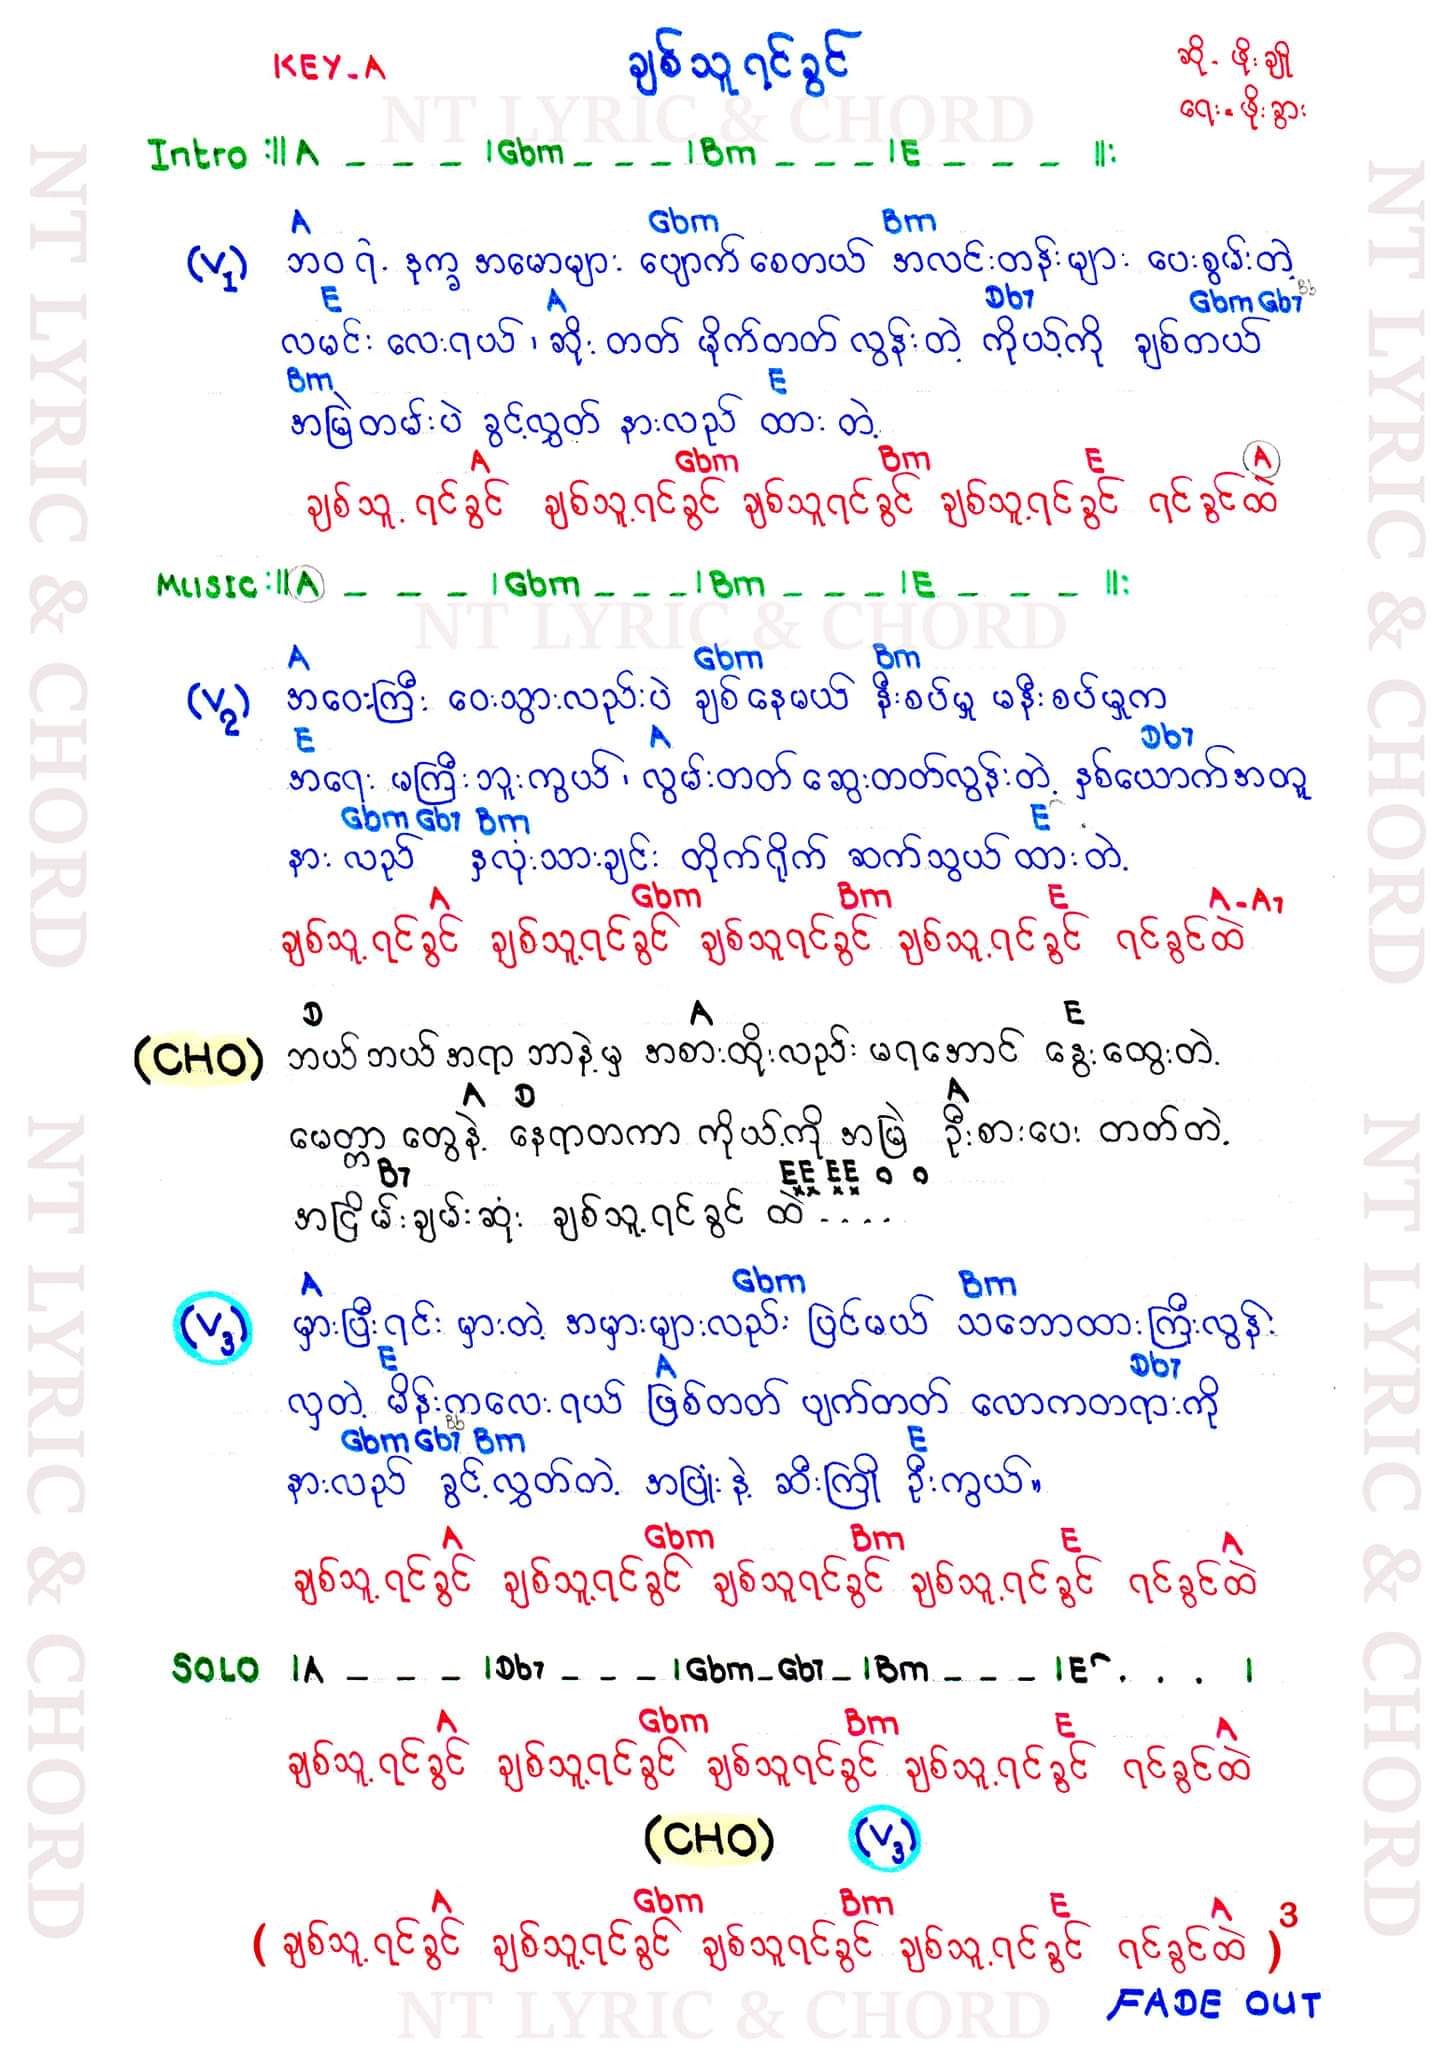 KEY-A
ချစ်သူ့ရင်ခွင်
ဆို - ဖိုးချို
ရေး - ဖိုးခွား
Intro :|| A _ _ _ | Gbm _ _ _ | Bm _ _ _ | E _ _ _ ||:
A Gbm Bm
(V1) ဘဝရဲ့ ဒုက္ခ အမောများ ပျောက်စေတယ် အလင်းတန်းများ ပေးစွမ်းတဲ့
E A Db7 Gbm Gb7 Bb
လမင်းလေးရယ်၊ ဆိုးတတ် မိုက်တတ်လွန်းတဲ့ ကိုယ့်ကို ချစ်တယ်
Bm E
အမြဲတမ်းပဲ ခွင့်လွှတ် နားလည်ထားတဲ့
A Gbm Bm E A
ချစ်သူ့ရင်ခွင် ချစ်သူ့ရင်ခွင် ချစ်သူရင်ခွင် ချစ်သူ့ရင်ခွင် ရင်ခွင်ထဲ
MUSIC :|| A _ _ _ | Gbm _ _ _ | Bm _ _ _ | E _ _ _ ||:
A Gbm Bm
(V2) အဝေးကြီး ဝေးသွားလည်းပဲ ချစ်နေမယ် နီးစပ်မှု မနီးစပ်မှုက
E A Db7
အရေးမကြီးဘူးကွယ်၊ လွမ်းတတ် ဆွေးတတ်လွန်းတဲ့ နှစ်ယောက်အတူ
Gbm Gb7 Bm E
နားလည် နှလုံးသားချင်း တိုက်ရိုက် ဆက်သွယ်ထားတဲ့
A Gbm Bm E A-A7
ချစ်သူ့ရင်ခွင် ချစ်သူ့ရင်ခွင် ချစ်သူရင်ခွင် ချစ်သူ့ရင်ခွင် ရင်ခွင်ထဲ
D A E
(CHO) ဘယ်ဘယ်အရာ ဘာနဲ့မှ အစားထိုးလည်း မရအောင် နွေးထွေးတဲ့
A D A
မေတ္တာတွေနဲ့ နေရာတကာ ကိုယ့်ကို အမြဲ ဦးစားပေးတတ်တဲ့
B7 EE EE o o
အငြိမ်းချမ်းဆုံး ချစ်သူ့ရင်ခွင်ထဲ ....
A Gbm Bm
(V3) မှားပြီးရင်း မှားတဲ့ အမှားများလည်း ပြင်မယ် သဘောထားကြီးလွန်း
E A Db7
လှတဲ့ မိန်းကလေးရယ် ဖြစ်တတ် ပျက်တတ် လောကတရားကို
Gbm Gb7 Bb Bm E
နားလည် ခွင့်လွှတ်တဲ့ အပြုံးနဲ့ ဆီးကြိုဦးကွယ်။
A Gbm Bm E A
ချစ်သူ့ရင်ခွင် ချစ်သူ့ရင်ခွင် ချစ်သူရင်ခွင် ချစ်သူ့ရင်ခွင် ရင်ခွင်ထဲ
SOLO | A _ _ _ | Db7 _ _ _ | Gbm _ Gb7 _ | Bm _ _ _ | E . . . |
A Gbm Bm E A
ချစ်သူ့ရင်ခွင် ချစ်သူ့ရင်ခွင် ချစ်သူရင်ခွင် ချစ်သူ့ရင်ခွင် ရင်ခွင်ထဲ
(CHO) (V3)
A Gbm Bm E A
( ချစ်သူ့ရင်ခွင် ချစ်သူ့ရင်ခွင် ချစ်သူရင်ခွင် ချစ်သူ့ရင်ခွင် ရင်ခွင်ထဲ )3
FADE OUT
NT LYRIC & CHORD
NT LYRIC & CHORD
NT LYRIC & CHORD
NT LYRIC & CHORD
NT LYRIC & CHORD
NT LYRIC & CHORD
NT LYRIC & CHORD